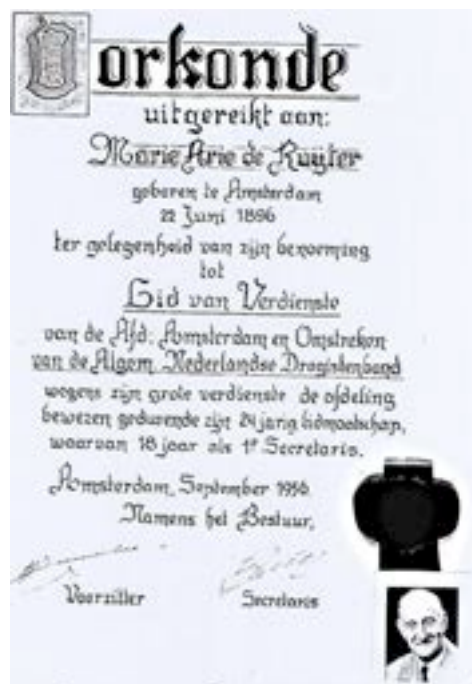 Oorkonde
uitgereikt aan:
Marie Arie de Ruyter
geboren te Amsterdam
22 Juni 1896
ter gelegenheid van zijn benoeming
tot
Lid van Verdienste
van de Afd: Amsterdam en Omstreken
van de Algem. Nederlandse Drogistenbond
wegens zijn grote verdienste de afdeling
bewezen gedurende zijn 24 jarig lidmaatschap,
waarvan 18 jaar als 1e Secretaris.
Amsterdam, September 1956
Namens het Bestuur,
Voorzitter Secretaris